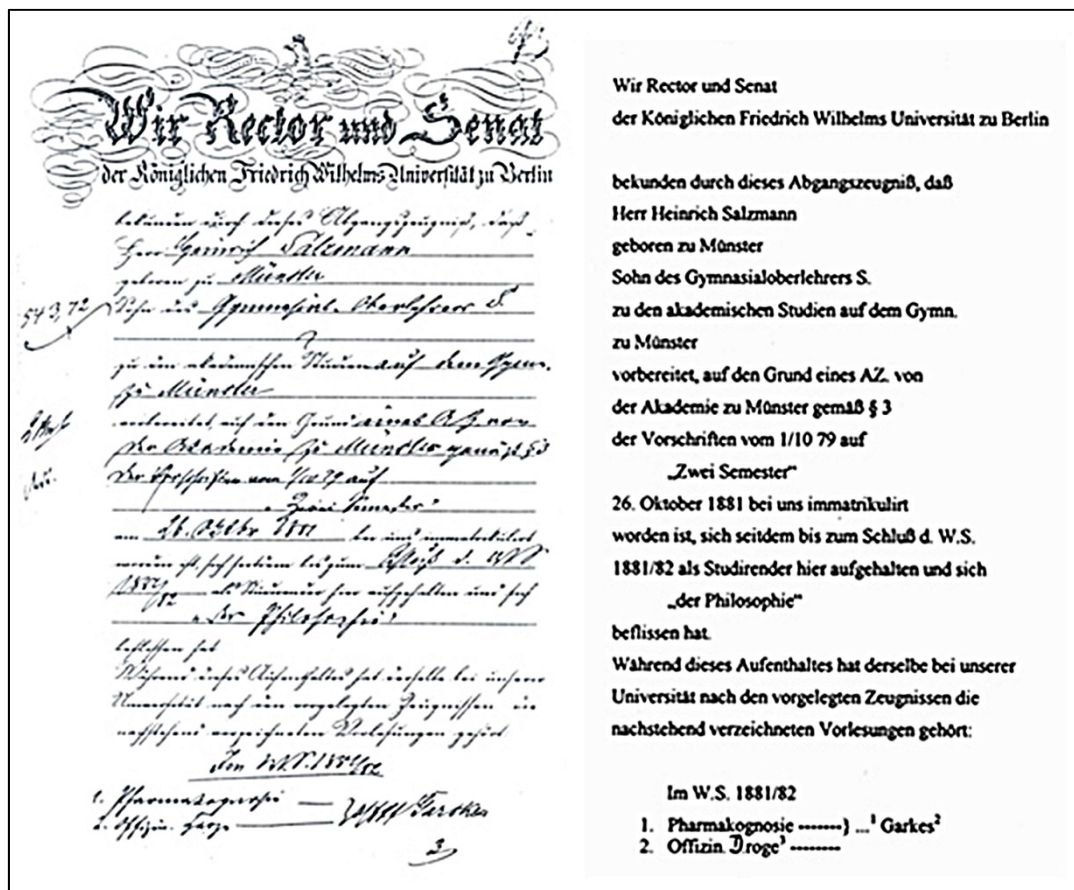 Wir Rector und Senat
der Königlichen Friedrich Wilhelms Universität zu Berlin
bekunden durch dieses Abgangszeugniß, daß
Herr Heinrich Salzmann
geboren zu Münster
Sohn des Gymnasial-Oberlehrers S.
zu den akademischen Studien auf dem Gymn.
zu Münster
vorbereitet, auf den Grund eines A.Z. von
der Akademie zu Münster gemäß § 3
der Vorschriften vom 1/10 79 auf
„Zwei Semester"
am 26. Oktbr 1881 bei uns immatrikulirt
worden ist, sich seitdem bis zum Schluß d. W.S.
1881/82 als Studirender hier aufgehalten und sich
„der Philosophie"
beflissen hat.
Während dieses Aufenthaltes hat derselbe bei unserer
Universität nach den vorgelegten Zeugnissen die
nachstehend verzeichneten Vorlesungen gehört:
Im W.S. 1881/82
1. Pharmakognosie
2. Offizin.
Wir Rector und Senat
der Königlichen Friedrich Wilhelms Universität zu Berlin
bekunden durch dieses Abgangszeugniß, daß
Herr Heinrich Salzmann
geboren zu Münster
Sohn des Gymnasialoberlehrers S.
zu den akademischen Studien auf dem Gymn.
zu Münster
vorbereitet, auf den Grund eines AZ. von
der Akademie zu Münster gemäß § 3
der Vorschriften vom 1/10 79 auf
„Zwei Semester"
26. Oktober 1881 bei uns immatrikulirt
worden ist, sich seitdem bis zum Schluß d. W.S.
1881/82 als Studirender hier aufgehalten und sich
„der Philosophie"
beflissen hat.
Während dieses Aufenthaltes hat derselbe bei unserer
Universität nach den vorgelegten Zeugnissen die
nachstehend verzeichneten Vorlesungen gehört:
Im W.S. 1881/82
1. Pharmakognosie -------} ...¹ Garkes²
2. Offizin. Droge³ --------